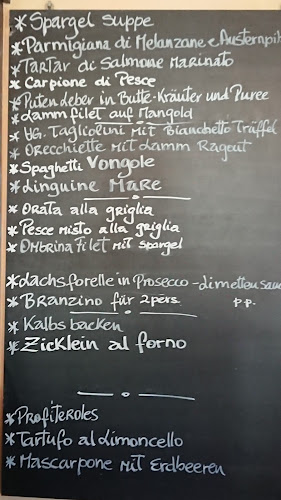 * Spargel Suppe
* Parmigiana di Melanzane e Austernpil
* Tartar di Salmone Marinato
* Carpione di Pesce
* Putenleber in Butte-Kräuter und Puree
* Lamm filet auf Mangold
* HG. Tagliolini mit Bianchetto Trüffel
* Orecchiette mit Lamm Ragout
* Spaghetti Vongole
* Linguine Mare
* Orata alla griglia
* Pesce misto alla griglia
* Ombrina Filet mit Spargel
* Lachsforelle in Prosecco-Limetten sau
* Branzino für 2pers. p.p.
* Kalbsbacken
* Zicklein al forno
* Profiteroles
* Tartufo al Limoncello
* Mascarpone mit Erdbeeren